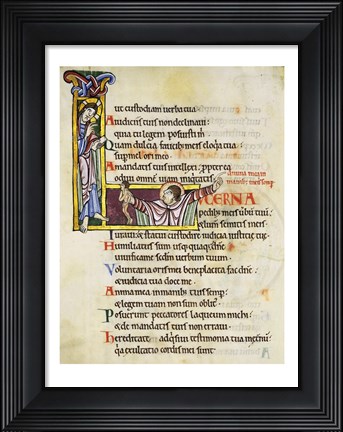 ut custodiam uerba tua.
A iudiciis tuis non declinaui:
quia tu legem posuisti m
Quam dulcia faucibus meis eloquia tua:
sup mel ori meo.
A mandatis tuis intellexi: ppterea
odiui omne uiam iniquitatis
anima mea in
manibus meis semp
LUCERNA
pedib; meis uerbum tuum:
& lumen semitis meis.
Iuraui & statui custodire iudicia iusticie tue
Humiliatus sum usq quaq dne:
uiuifica me scdm uerbum tuum.
Voluntaria oris mei beneplacita fac dne:
& iudicia tua doce me.
Anima mea in manib; tuis semp:
& legem tuam non sum oblit'
Posuerunt peccatores laqueum michi:
& de mandatis tuis non erraui.
Hereditate adqsiui testimonia tua
qa exultatio cordis mei sunt.